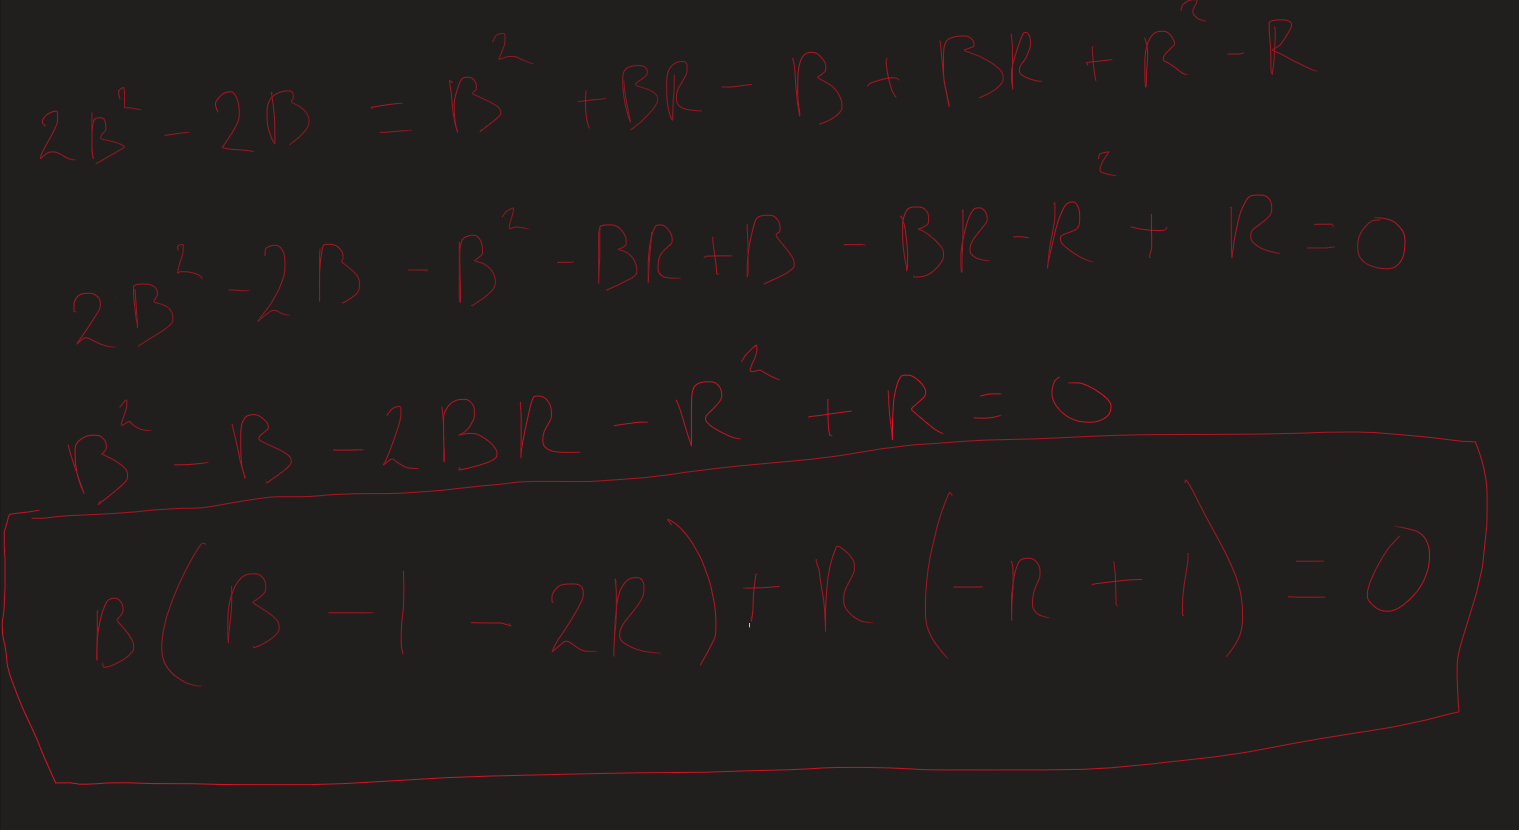 2B² - 2B = B² + BR - B + BR + R² - R
2B² - 2B - B² - BR + B - BR - R² + R = 0
B² - B - 2BR - R² + R = 0
B(B - 1 - 2R) + R(-R + 1) = 0